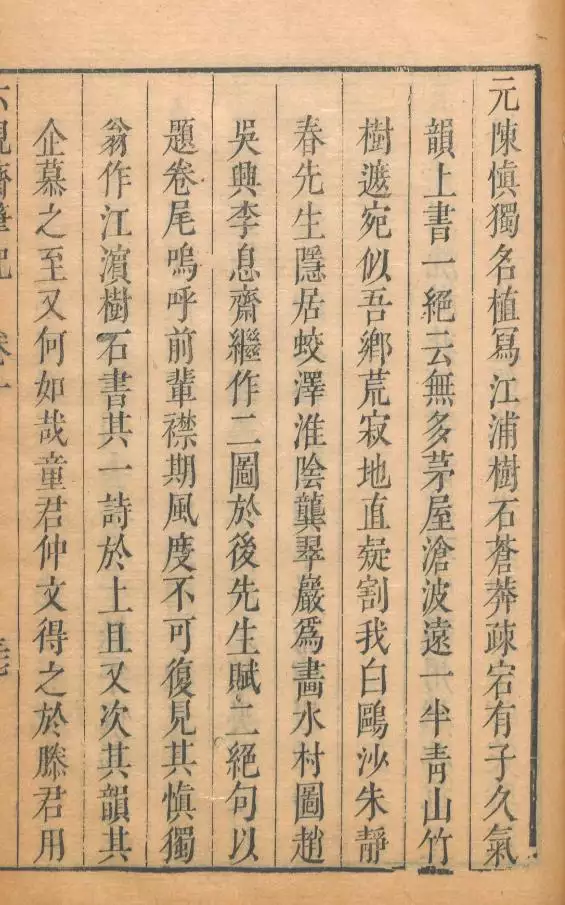 元陳慎獨名植冩江浦樹石蒼莽疎宕有子久氣
韻上書一絕云無多茅屋滄波遠一半靑山竹
樹遮宛似吾鄉荒寂地直疑割我白鷗沙朱靜
春先生隱居蛟澤淮陰龔翠巖爲畵水村圖趙
吳興李息齋繼作二圖於後先生賦二絕句以
題卷尾嗚呼前輩襟期風度不可復見其愼獨
翁作江濵樹石書其一詩於上且又次其韻其
企慕之至又何如哉童君仲文得之於縢君用
六硯齋筆記 卷一